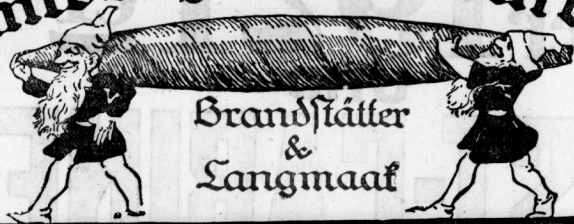 Brandſtätter
&
Langmaak